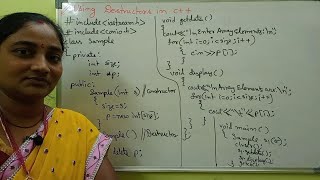 Using Destructors in C++
# include<iostream.h>
# include<conio.h>
class Sample
{ private:
int size;
int *p;
public:
Sample(int s) // Constructor
{ size=s;
p=new int[size];
}
Sample() // Destructor
delete p;
void getdata()
{
cout<<"\n Enter Array Elements:\n";
for(int i=0;i<size;i++)
{ cin>>p[i];
}
}
void display()
{
cout<<"\n Array Elements are:\n";
for(int i=0;i<size;i++)
{
cout<<"\n"<<p[i];
}
}
};
void main()
{